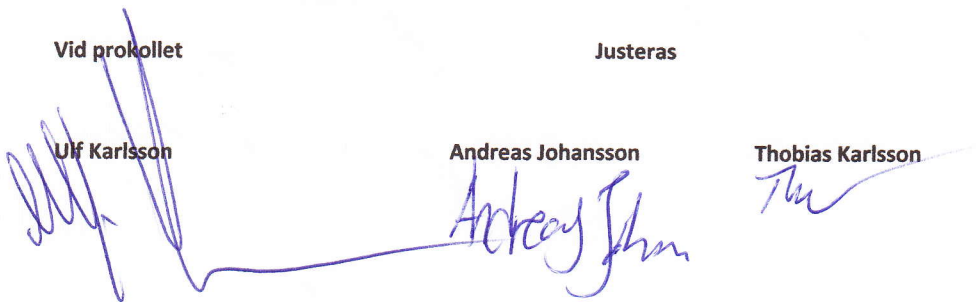 Vid prokollet Justeras
Ulf Karlsson Andreas Johansson Thobias Karlsson
Andreas Johan